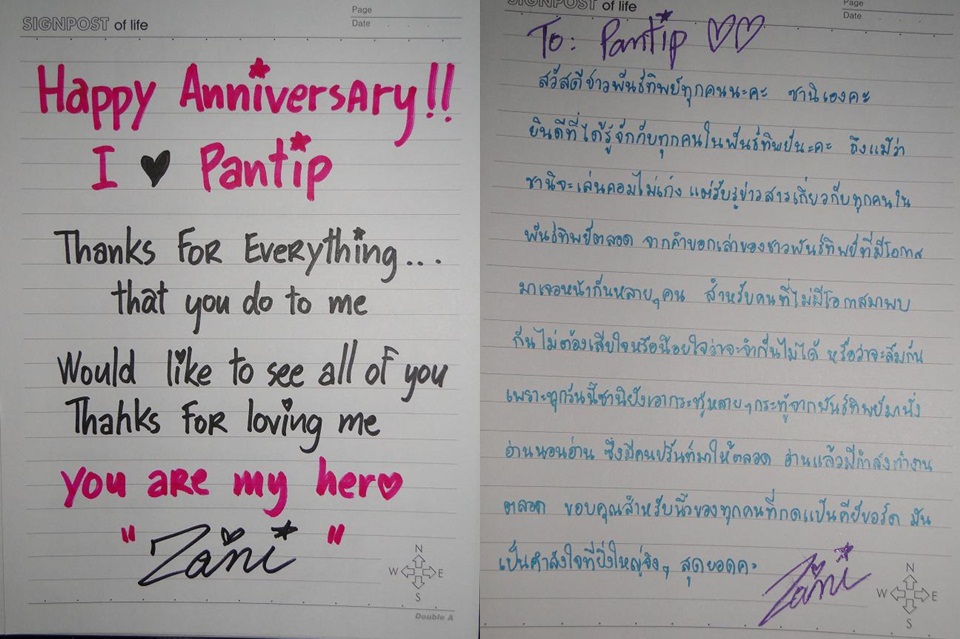 SIGNPOST of life
Page
Date
Happy Anniversary!!
I ♥ Pantip
Thanks For Everything...
that you do to me
Would like to see all of you
Thahks For loving me
you are my hero
"Zani"
N
W E
S
Double A
SIGNPOST of life
Page
Date
To: Pantip ♡♡
สวัสดีชาวพันธ์ทิพย์ทุกคนนะคะ ซานิเองคะ
ยินดีที่ได้รู้จักกับทุกคนในพันธ์ทิพย์นะคะ ถึงแม้ว่า
ซานิจะเล่นคอมไม่เก่ง แต่รับรู้ข่าวสารเกี่ยวกับทุกคนใน
พันธ์ทิพย์ตลอด จากคำบอกเล่าของชาวพันธ์ทิพย์ที่มีโอกาส
มาเจอหน้ากันหลายๆคน สำหรับคนที่ไม่มีโอกาสมาพบ
กันไม่ต้องเสียใจหรือน้อยใจว่าจะจำกันไม่ได้ หรือว่าจะลืมกัน
เพราะทุกวันนี้ซานิยังเอากระทู้หลายๆกระทู้จากพันธ์ทิพย์มานั่ง
อ่านนอนอ่าน ซึ่งมีคนปริ้นท์มาให้ตลอด อ่านแล้วมีกำลังทำงาน
ตลอด ขอบคุณสำหรับนิ้วของทุกคนที่กดแป้นคีย์บอร์ด มัน
เป็นกำลังใจที่ยิ่งใหญ่จิงๆ สุดยอดคะ
Zani
N
W E
S